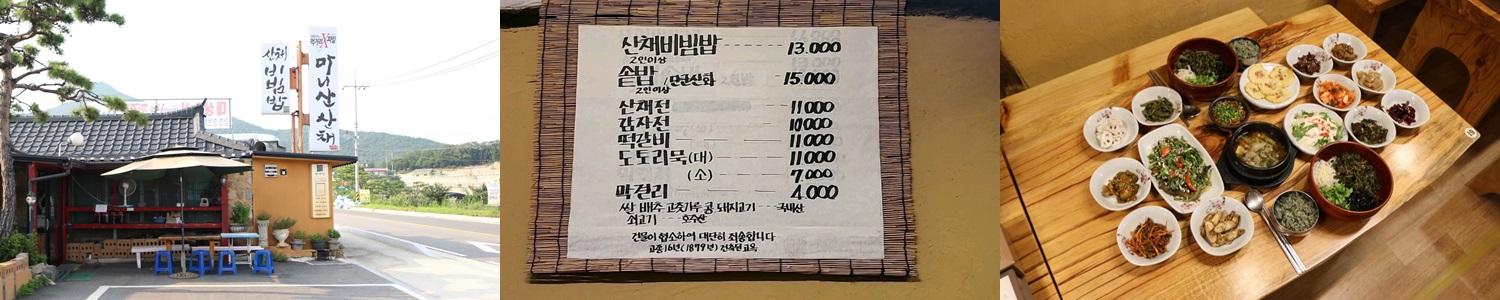 산채
비빔밥
마니산 산채
산채비빔밥 ------ 13.000
2인이상
솥밥 -15.000
2인이상
산채전 11000
감자전 10000
떡갈비 —— —— 11000
도토리묵(대) —— —— 11000
(소) — — 7.000
막걸리 — — —— 4.000
쌀 배추 고춧가루 콩 돼지고기 --- 국내산
쇠고기 --- 호주산
건물이 협소하여 대단히 죄송합니다
고종16년(1879년) 건축된 고옥